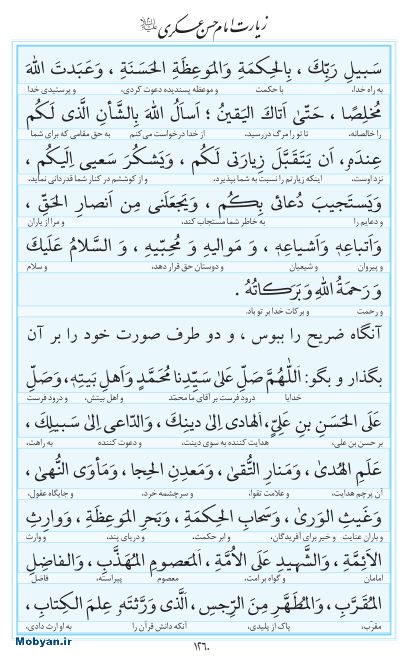 زیارت امام حسن عسکری علیه‌السلام
سَبیلِ رَبِّکَ ، بِالحِکمَةِ وَالمَوعِظَةِ الحَسَنَةِ ، وَعَبَدتَ اللهَ
به راه خدا، با حکمت و موعظه پسندیده دعوت کردی، و پرستیدی خدا
مُخلِصًا ، حَتّیٰ اَتاکَ الیَقینُ ؛ اَساَلُ اللهَ بِالشَّأنِ الَّذی لَکُم
را خالصانه، تا تو را مرگ دررسید، از خدا درخواست می‌کنم به حق مقامی که برای شما
عِندَهُ، اَن یَتَقَبَّلَ زِیارَتی لَکُم ، وَیَشکُرَ سَعیی اِلَیکُم ،
نزد اوست، اینکه زیارتم را نسبت به شما بپذیرد، و از کوششم در کنار شما قدردانی نماید،
وَیَستَجیبَ دُعائی بِکُم ، وَیَجعَلَنی مِن اَنصارِ الحَقِّ ،
و دعایم را به خاطر شما مستجاب کند، و مرا از یاران
وَاَتباعِهِ وَاَشیاعِهِ ، وَ مَوالیهِ وَ مُحِبّیهِ ، وَ السَّلامُ عَلَیکَ
و پیروان و شیعیان و دوستان حق قرار دهد، و سلام
وَ رَحمَةُ اللهِ وَ بَرَکاتُهُ .
و رحمت و برکات خدا بر تو باد.
آنگاه ضریح را ببوس ، و دو طرف صورت خود را بر آن
بگذار و بگو: اَللّٰهُمَّ صَلِّ عَلیٰ سَیِّدِنا مُحَمَّدٍ وَاَهلِ بَیتِهِ، وَصَلِّ
خدایا درود فرست بر آقای ما محمّد و اهل بیتش، و درود فرست
عَلَی الحَسَنِ بنِ عَلِیٍّ، اَلهادی اِلیٰ دینِکَ ، وَالدّاعی اِلیٰ سَبیلِکَ ،
بر حسن بن علی، هدایت کننده به سوی دینت، و دعوت کننده به راهت،
عَلَمِ الهُدیٰ، وَمَنارِ التُّقیٰ ، وَمَعدِنِ الحِجا ، وَمَأوَی النُّهیٰ ،
آن پرچم هدایت، و علامت تقوا، و سرچشمه خرد، و جایگاه عقول،
وَغَیثِ الوَریٰ ، وَسَحابِ الحِکمَةِ ، وَبَحرِ المَوعِظَةِ ، وَوارِثِ
و باران عنایت و خیر برای آفریدگان، و ابر حکمت، و دریای پند، و وارث
الاَئِمَّةِ ، وَالشَّهیدِ عَلَی الاُمَّةِ ، اَلمَعصومِ المُهَذَّبِ ، وَالفاضِلِ
امامان و گواه بر امت، معصوم پیراسته، فاضل
المُقَرَّبِ ، وَالمُطَهَّرِ مِنَ الرِّجسِ ، اَلَّذی وَرَّثتَهُ عِلمَ الکِتابِ ،
مقرّب، پاک از پلیدی، آنکه دانش قرآن را به او ارث دادی،
۱۲۶۰
Mobyan.ir